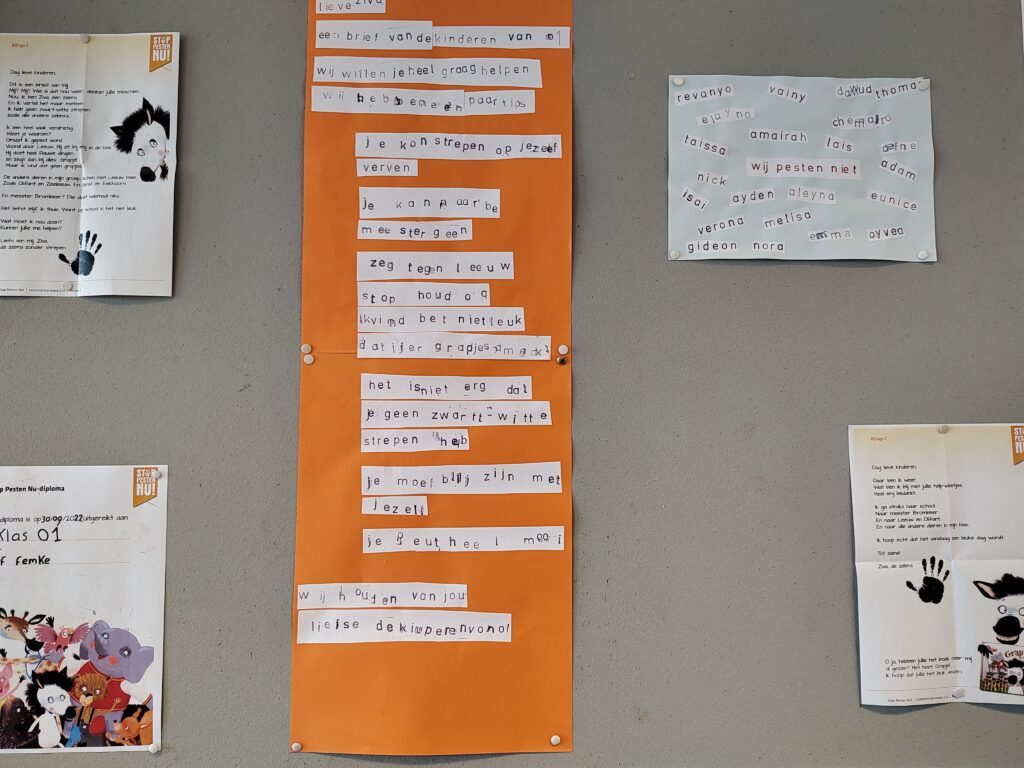 Bijlage C
STOP
PESTEN
NU!
Dag lieve kinderen,
Dit is een brief van mij.
Mij? Mij? Wie is dat nou weer, denken jullie misschien.
Nou, ik ben Ziva, een zebra.
En ik vertel het maar meteen:
ik heb geen zwart-witte strepen,
zoals alle andere zebra's.
Ik ben heel vaak verdrietig.
Weet je waarom?
Omdat ik gepest word.
Vooral door Leeuw. Hij zit bij mij in de klas.
Hij doet heel flauwe dingen
en zegt dan bij alles: Grapje!
Maar ik vind dat geen grapjes.
De andere dieren in mijn groep doen met Leeuw mee.
Zoals Olifant en Zeeleeuw. En Eekhoorn.
En meester Brombeer? Die doet helemaal niks.
Het liefst blijf ik thuis. Want op school is het niet leuk.
Wat moet ik nou doen?
Kunnen jullie me helpen?
Liefs van mij, Ziva,
de zebra zonder strepen.
lieve ziva
een brief van de kinderen van o1
wij willen je heel graag helpen
wij hebben een paar tips
je kon strepen op jezelf
verven
je kan naar be
meester geen
zeg tegen leeuw
stop houd o
ik vind bet niet leuk
dat ijer grapjes
het is niet erg dat
je geen zwartt-witte
strepen heb
je moef blij zijn met
jezelf
je heel mooi
wij houden van jou
liefse de van o1
revanyo vainy dawud thomas
elayna chemairo
taissa amairah lais defne
wij pesten niet
nick adam
isai ayden aleyna eunice
verona melisa
emma ayvea
gideon nora
STOP
PESTEN
NU!
p Pesten Nu-diploma
diploma is op 30/09/2022 uitgereikt aan
Klas 01
f Femke
Bijlage C
STOP
PESTEN
NU!
Dag lieve kinderen,
Daar ben ik weer.
Wat ben ik blij met jullie help-weetjes.
Heel erg bedankt.
Ik ga straks naar school.
Naar meester Brombeer.
En naar Leeuw en Olifant.
En naar alle andere dieren in mijn klas.
Ik hoop echt dat het vandaag een leuke dag wordt.
Tot ziens!
Ziva, de zebra
O ja, hebben jullie het boek over mij
al gezien? Het heet Grapje!
Ik hoop dat jullie het leuk vinden.
Grapje